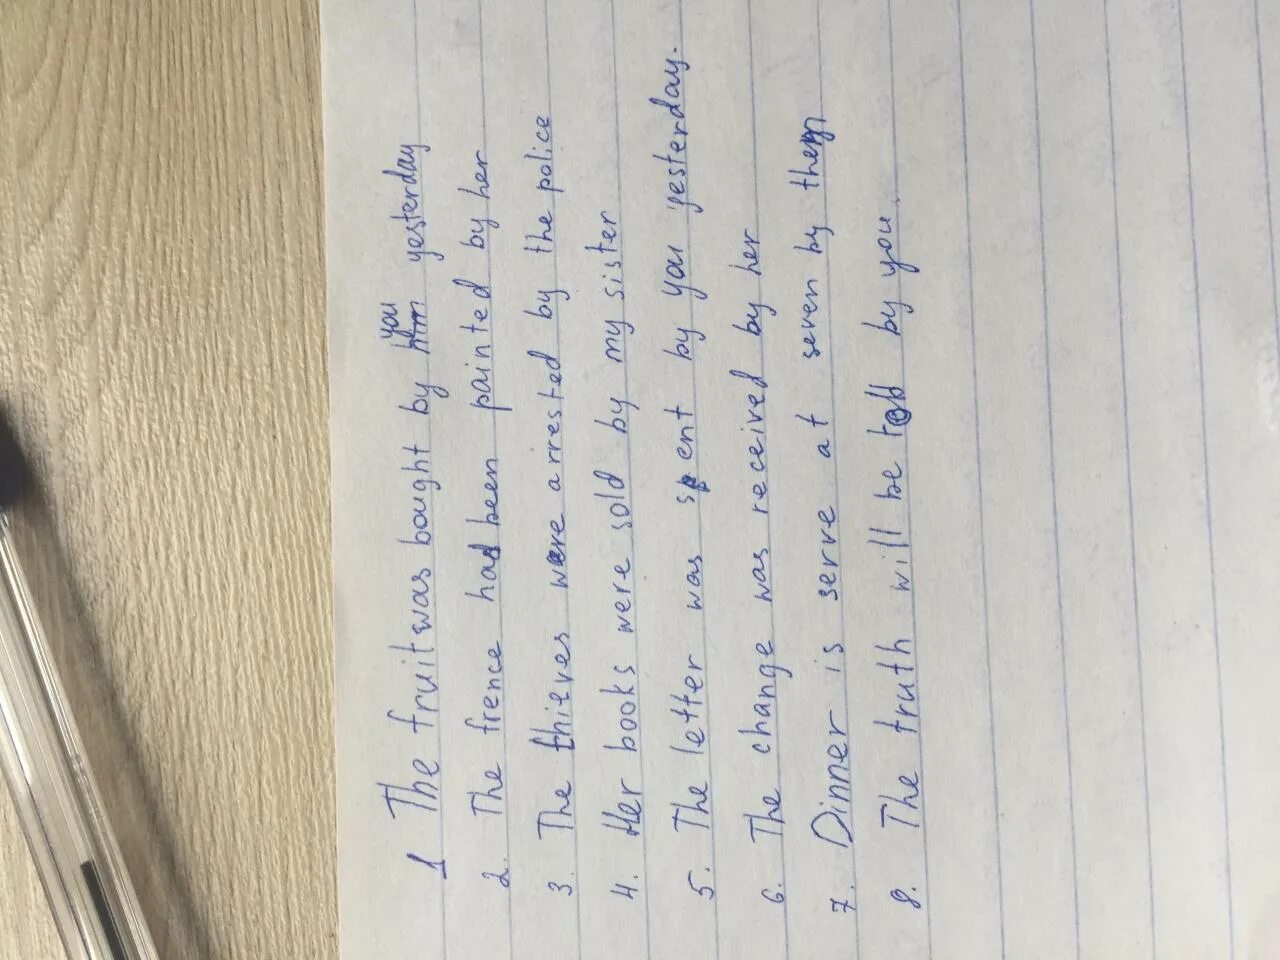 1 The fruit was bought by you yesterday
2. The frence had been painted by her
3. The thieves were arrested by the police
4. Her books were sold by my sister
5. The letter was sent by you yesterday.
6. The change was received by her
7. Dinner is serve at seven by them
8. The truth will be told by you.